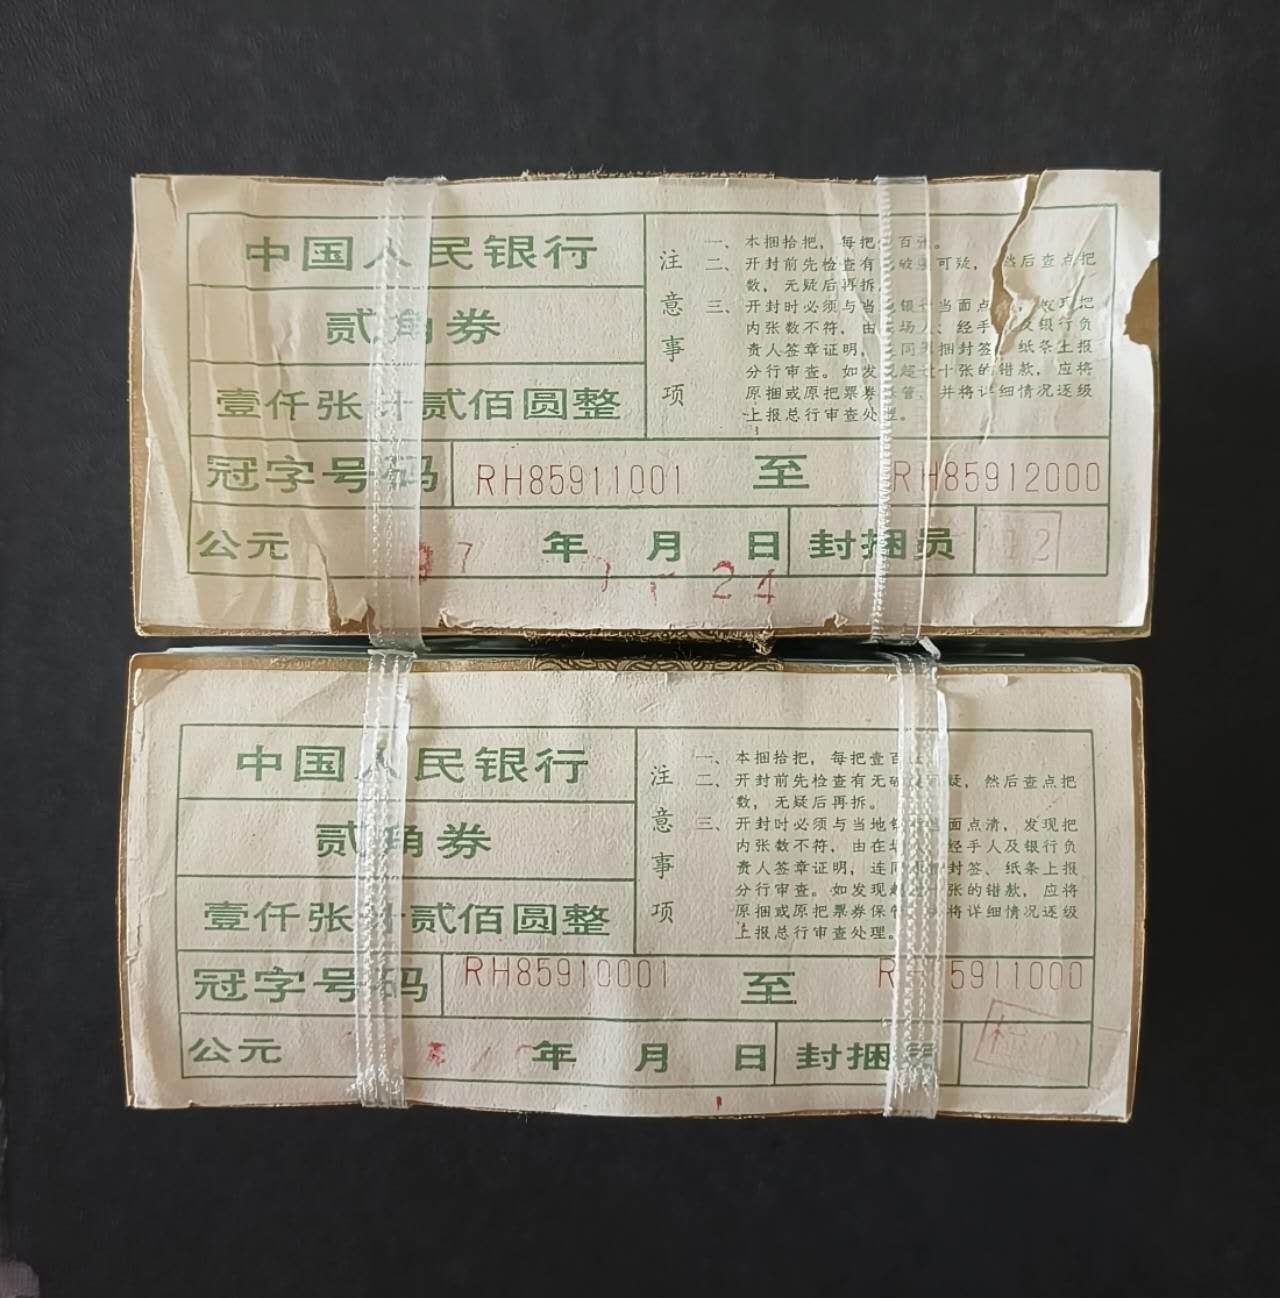 中国人民银行
贰角券
壹仟张计贰佰圆整
注意事项
一、本捆拾把，每把 百张。
二、开封前先检查有 破 可疑，然后查点把
数，无疑后再拆。
三、开封时必须与当地银行当面点 ，发现把
内张数不符，由 场 、经手 及银行负
贵人签章证明， 同 捆封签、纸条上报
分行审查。如发现超过十张的错款，应将
原捆或原把票券 管，并将详细情况逐级
上报总行审查处理。
冠字号码 RH85911001 至 RH85912000
公元 7 年 月 日 封捆员 12
24
中国人民银行
贰角券
壹仟张计贰佰圆整
注意事项
一、本捆拾把，每把壹百
二、开封前先检查有无破 疑，然后查点把
数，无疑后再拆。
三、开封时必须与当地银 当面点清，发现把
内张数不符，由在场 经手人及银行负
责人签章证明，连同 封签、纸条上报
分行审查。如发现超 十张的错款，应将
原捆或原把票券保管 将详细情况逐级
上报总行审查处理。
冠字号码 RH85910001 至 R 5911000
公元 年 月 日 封捆员